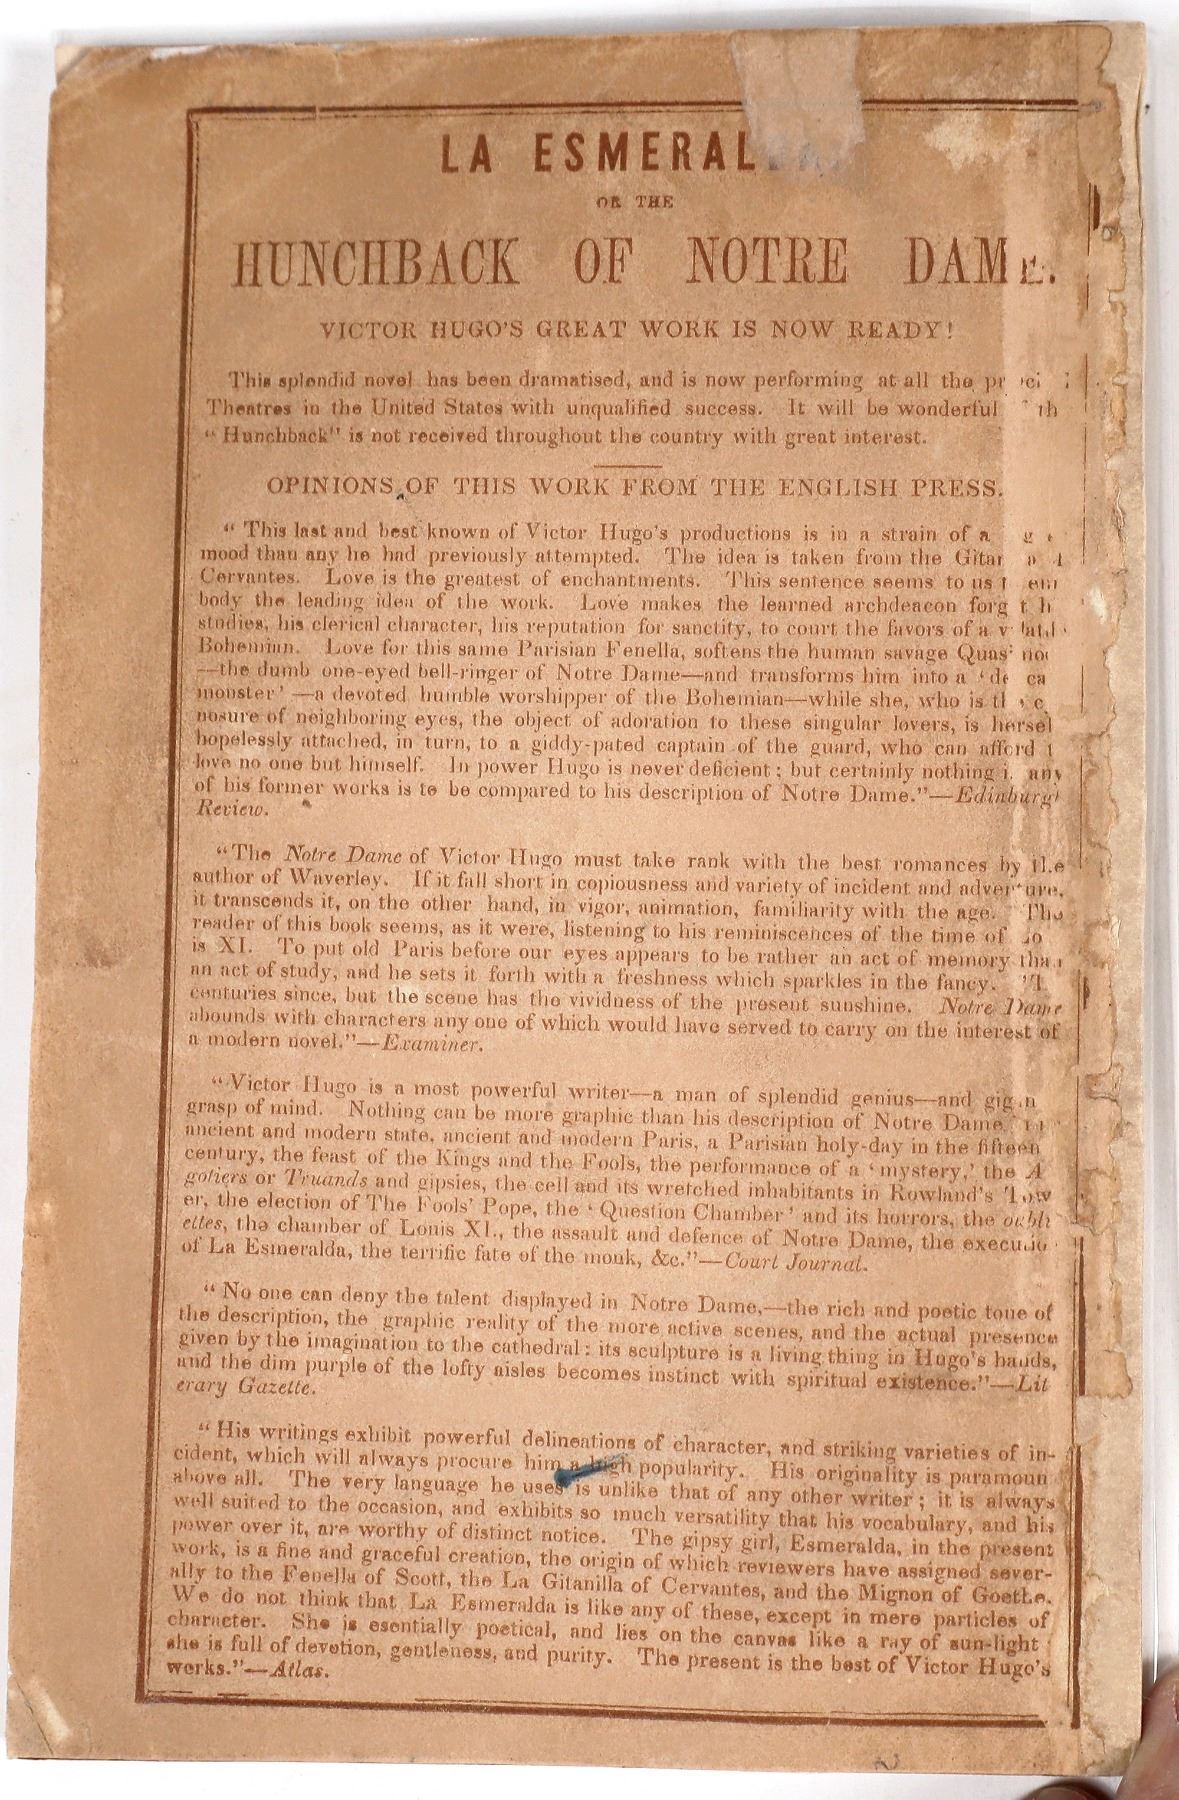 LA ESMERAL
OR THE
HUNCHBACK OF NOTRE DAME.
VICTOR HUGO'S GREAT WORK IS NOW READY!
This splendid novel has been dramatised, and is now performing at all the
Theatres in the United States with unqualified success. It will be wonderful
"Hunchback" is not received throughout the country with great interest.
OPINIONS OF THIS WORK FROM THE ENGLISH PRESS.
"This last and best known of Victor Hugo's productions is in a strain of a
mood than any he had previously attempted. The idea is taken from the
Cervantes. Love is the greatest of enchantments. This sentence seems to us
body the leading idea of the work. Love makes the learned archdeacon
studies, his clerical character, his reputation for sanctity, to court the favors of a
Bohemian. Love for this same Parisian Fenella, softens the human savage
—the dumb one-eyed bell-ringer of Notre Dame—and transforms him into a
monster'—a devoted, humble worshipper of the Bohemian—while she, who is
nosure of neighboring eyes, the object of adoration to these singular lovers, is
hopelessly attached, in turn, to a giddy-pated captain of the guard, who can afford
love no one but himself. In power Hugo is never deficient; but certainly nothing any
of his former works is to be compared to his description of Notre Dame."—Edinburg
Review.
"The Notre Dame of Victor Hugo must take rank with the best romances by the
author of Waverley. If it fall short in copiousness and variety of incident and adventure,
it transcends it, on the other hand, in vigor, animation, familiarity with the age. The
reader of this book seems, as it were, listening to his reminiscences of the time of
is XI. To put old Paris before our eyes appears to be rather an act of memory than
an act of study, and he sets it forth with a freshness which sparkles in the fancy.
centuries since, but the scene has the vividness of the present sunshine. Notre Dame
abounds with characters any one of which would have served to carry on the interest of
a modern novel."—Examiner.
"Victor Hugo is a most powerful writer—a man of splendid genius—and
grasp of mind. Nothing can be more graphic than his description of Notre Dame,
ancient and modern state, ancient and modern Paris, a Parisian holy-day in the fifteen
century, the feast of the Kings and the Fools, the performance of a 'mystery,' the
gotiers or Truands and gipsies, the cell and its wretched inhabitants in Rowland's Tow
er, the election of The Fools' Pope, the 'Question Chamber' and its horrors, the oubli
ettes, the chamber of Louis XI., the assault and defence of Notre Dame, the
of La Esmeralda, the terrific fate of the monk, &c."—Court Journal.
"No one can deny the talent displayed in Notre Dame,—the rich and poetic tone of
the description, the graphic reality of the more active scenes, and the actual presence
given by the imagination to the cathedral: its sculpture is a living thing in Hugo's hands,
and the dim purple of the lofty aisles becomes instinct with spiritual existence."—Lit
erary Gazette.
"His writings exhibit powerful delineations of character, and striking varieties of in-
cident, which will always procure him a high popularity. His originality is paramoun
above all. The very language he uses is unlike that of any other writer; it is always
well suited to the occasion, and exhibits so much versatility that his vocabulary, and his
power over it, are worthy of distinct notice. The gipsy girl, Esmeralda, in the present
work, is a fine and graceful creation, the origin of which reviewers have assigned sever-
ally to the Fenella of Scott, the La Gitanilla of Cervantes, and the Mignon of Goethe.
We do not think that La Esmeralda is like any of these, except in mere particles of
character. She is esentially poetical, and lies on the canvas like a ray of sun-light
she is full of devotion, gentleness, and purity. The present is the best of Victor Hugo's
works."—Atlas.